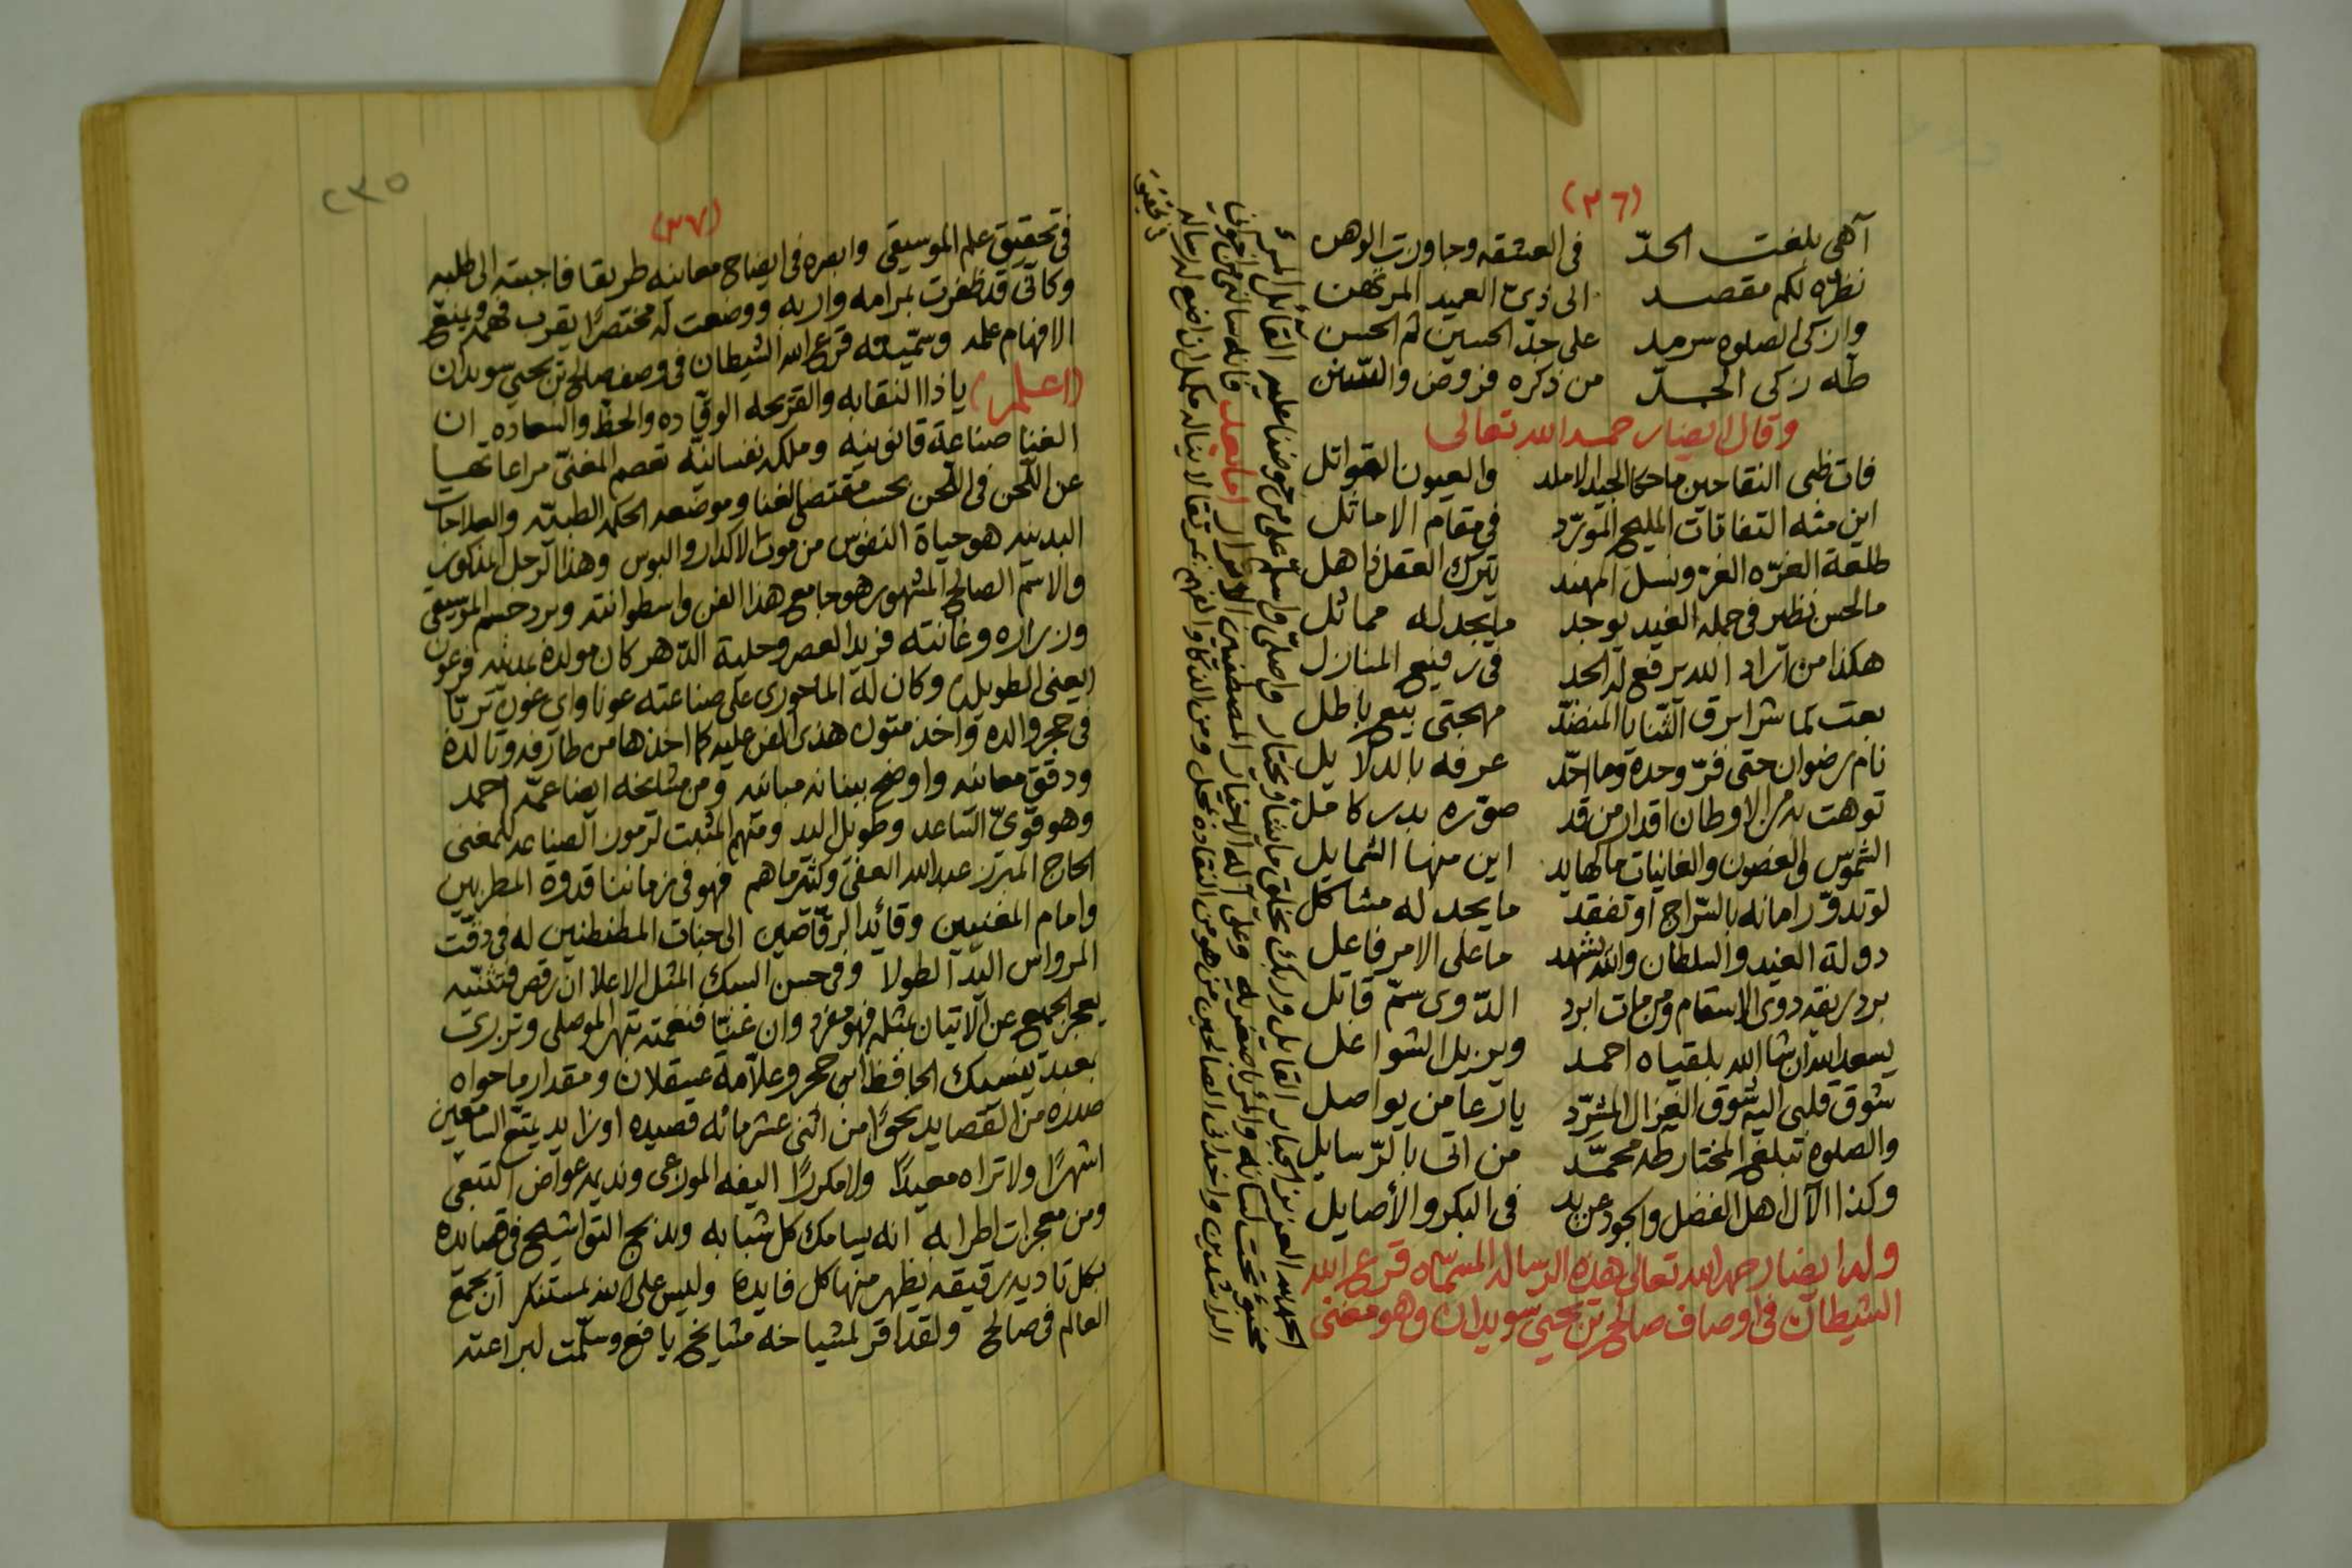 (٣٦)
آهي بلغت الحدّ في العشقه وجاوزت الوهن
نظرّه لكم مقصد الى ذيّ العبيد المرتهن
وازكى الصلوه سرمد على جدّ الحسين ثم الحسن
طه زكي الجدّ من ذكره فروض والسّنن
وقال ايضا رحمه الله تعالى
فات ظبي النقا حين ما حكا الجيد الاملد والعيون القواتل
اين مثله التفاتات المليح المورّد في مقام الاماثل
طلعة الغرّه الغرّ ونسل امهند يترك العقل ذاهل
مالحسن نظير في جمله الغيد يوجد مايجد له مماثل
هكذا من اراد الله يرفع له الحد في رفيع المنازل
بعت لما شرا برق الثنايا المنضّد مهجتي بيع باطل
نام رضوان حتى فرّ وحده وما احّد عرفه بالدلايل
توهت به من الاوطان اقدار من قد صوّره بدر كامل
الشموس والغصون والغانيات مالها يد اين منها الشمايل
لو تدوّر امانه بالسّراج او تفقد مايجد له مشاكل
دولة الغيد والسلطان والله يشهد ما على الامر فاعل
برد ريقه دوى الاسقام ومن مات ابرد الدّوى سمّ قاتل
يسعد الله ان شا الله بلقياه احمد ويزيل الشواغل
شوق قلبي اليه شوق الغزال المشرّد يا رعا من يواصل
والصلوه تبلغ المختار طه محمّد من اتى بالرّسايل
وكذا الآل اهل الفضل والجود عن يد في البكر والأصايل
وله ايضا رحمه الله تعالى هذه الرساله المسمّاه قرع الله
الشيطان في اوصاف صالح بن يحيى سويدان وهو مغني
الحمد لله العزيز الجبار القايل وربك يخلق مايشاء ويختار واصلّي واسلّم على من حوضنا عليه القائل المرء
مخبوء تحت لسانه والمرء باصغريه وعلى آله الاخيار المصطفين الابرار اما بعد فانه سالني من اخواني
الراشدين واخداني الصالحين من هو من النقاده بمحل ومن الذكا والفهم بمرتقا لايناله مكمل ان اضع له رساله
في تحقيق
٢٣٥
(٣٧)
في تحقيق علم الموسيقي وابصره في ايضاح معانيه طريقا فاجبته الى طلبه
وكاني قد ظفرت بمرامه واربه ووضعت له مختصرًا يقرب فهمه ويمنع
الافهام علمه وسمّيته قرع الله الشيطان في وصف صالح بن يحيى سويدان
(اعلم) ياذا النقابه والقريحه الوقّاده والحظ والسعاده ان
الغنا صناعة قانونيه وملكه نفسانيّه تعصم المغنّي مراعاتها
عن اللّحن في اللّحن بحسب مقتضى الغنا وموضعه الحكمه الطبيّه والعلاجات
البدنيه هو حياة النفوس من موت الاكدار والبوس وهذا الرجل المذكور
والاسم الصالح المشهور هو جامع هذا الفن واسطوانته وبرد جسم الموسيقي
وزرازه وغانته فريد العصر وحلية الدّهر كان مولده بمدينه فرعون
(يعني الطويله) وكان له الماخوري على صناعته عونا واي عون تربّا
في حجر والده واخذ متون هذي الفن عليه كما اخذها من طارفه وتالده
ودقق معانيه واوضح ببنانه مبانيه ومن مشايخه ايضا عمّه احمد
وهو قويّ الساعد وطويل اليد ومنهم المثبت لرمون الصناعه للمغني
الحاج المبرز عبدالله العفيّ وكثير ماهم فهو في زماننا قدوة المطربين
وامام المغنيين وقائد الرقّاصين الى جنبات المطنطنين له في دقّت
المرواس اليد الطولا وفي حسن السبك المثل الاعلا ان رقص فتثنّيه
يعجز الجميع عن الاتيان بمثله فهو مفرد وان غنّا فنغمته تبهر الموصلي وتزري
بعبد ينسيك الحافظ ابن حجر وعلّامة عسقلان ومقدار ماحواه
صدره من القصايد نحوًا من اثني عشر مائه قصيده اوزايد يمتّع السامعين
اشهرًا ولا تراه معيدًا ولا مكررًا اليفه الموزعي ونديمه عواض التبعي
ومن معجزات اطرابه انه يسامك كل شبابه ويدبج التواشيح في قصايده
بكل تاديه رقيقه يظهر منها كل فايدة وليس على الله بمستنكر ان يجمع
العالم في صالح ولقد اقر لمشياخه مشايخ يافع وسلّمت لبراعته